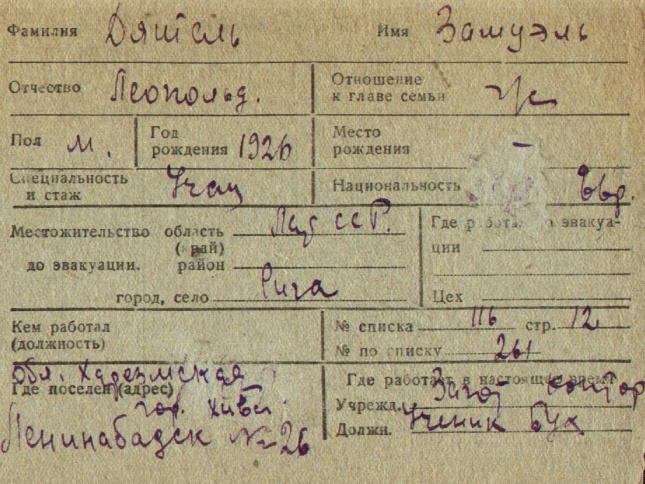 Фамилия Дятель Имя Замуэль
Отчество Леопольд. Отношение к главе семьи ч/с
Пол м. Год рождения 1926 Место рождения –
Специальность и стаж Учащ Национальность Евр.
Местожительство область Лат ССР. Где работал до эвакуа-
(край) ции
до эвакуации. район
город, село Рига Цех
Кем работал № списка 116 стр. 12
(должность) № по списку 261
обл. Харезмская Где работает в настоящее время
Где поселен (адрес) Учрежд. Загот контор
гор. Хива Должн. Ученик Бух
Ленинабадск № 26